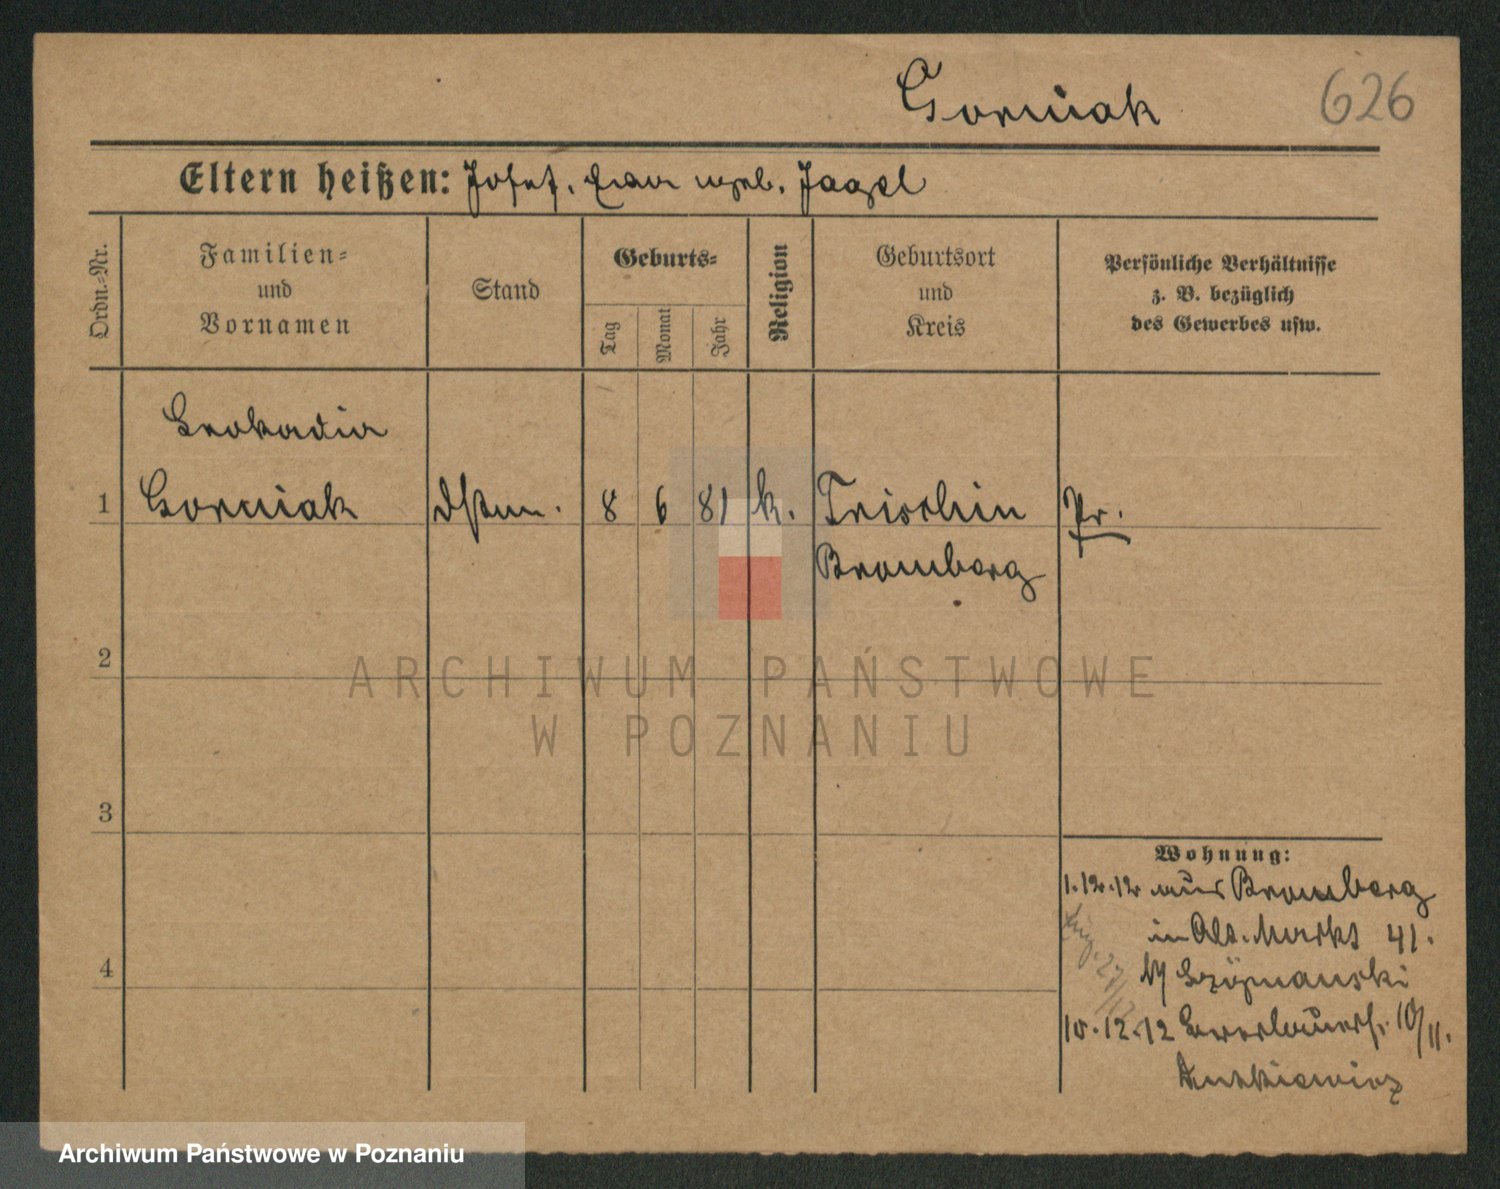 Gorniak
626
Eltern heißen: Josef, Eva geb. Jagel
Ordn.-Nr.
Familien-
und
Vornamen
Stand
Geburts-
Tag
Monat
Jahr
Religion
Geburtsort
und
Kreis
Persönliche Verhältnisse
z. B. bezüglich
des Gewerbes usw.
Leokadia
1 Gorniak 8 6 81 k. Trischin Pr.
Bromberg
2
3
4
Wohnung:
1.12.12 aus Bromberg
in Alt. Markt 41.
10.12.12 10/11.
ARCHIWUM PAŃSTWOWE
W POZNANIU
Archiwum Państwowe w Poznaniu